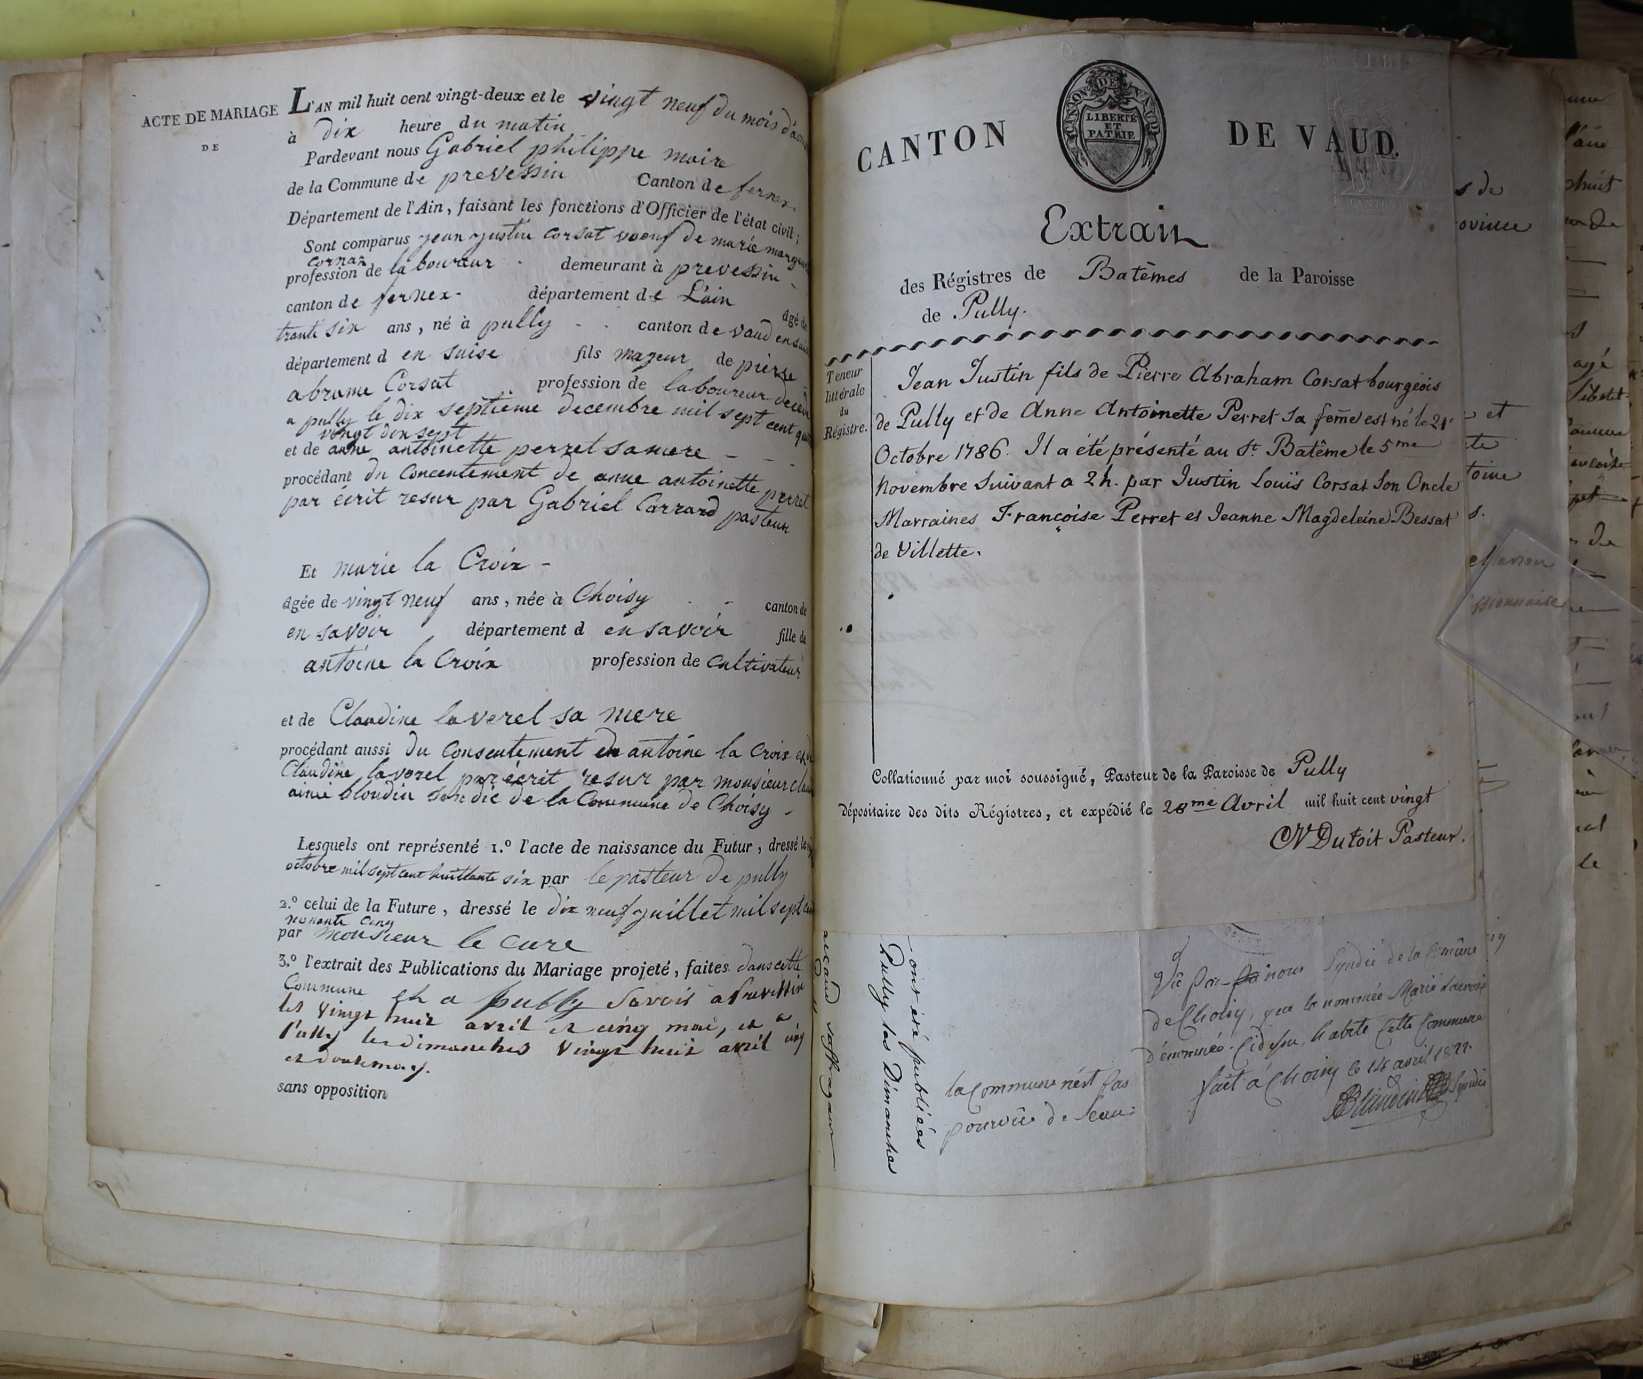 ACTE DE MARIAGE
DE
L'AN mil huit cent vingt-deux et le vingt neuf du mois
à dix heure du matin
Pardevant nous Gabriel philippe maire
de la Commune de prevessin Canton de fernex.
Département de l'Ain, faisant les fonctions d'Officier de l'état civil;
Sont comparus jean justin corsat voeuf de marie
cornaz
profession de laboureur demeurant à prevessin
canton de fernex. département de L'ain âgé de
trante six ans, né à pully canton de vaud en
département d en suise fils majeur de pierre
abrame Corsat profession de laboureur
a pully le dix septieme decembre mil sept cent
vingt dix sept
et de anne antoinette perret sa mere
procédant du concentement de anne antoinette perret
par écrit resur par Gabriel Carrard pasteur
Et marie la Croix -
âgée de vingt neuf ans, née à Choisy canton de
en savoir département d en savoir fille de
antoine la Croix profession de cultivateur
et de Claudine laverel sa mere
procédant aussi du consentement de antoine la Croix
Claudine laverel par écrit resur par monsieur
aimé blondin sendic de la Commune de Choisy -
Lesquels ont représenté 1.º l'acte de naissance du Futur, dressé le
octobre mil sept cent huittante six par le pasteur de pully
2.º celui de la Future, dressé le dix neuf juillet mil sept
nonante cinq
par monsieur le cure
3.º l'extrait des Publications du Mariage projeté, faites dans cette
Commune et a pully savoir a Prevessin
les vingt huit avril et cinq mai, et a
Pully les dimanches vingt huit avril cinq
et douze may.
sans opposition
CANTON DE VAUD.
CANTON DE VAUD
LIBERTÉ
ET
PATRIE
Extrait
des Régistres de Batêmes de la Paroisse
de Pully.
Teneur
littérale
du
Régistre.
Jean Justin fils de Pierre Abraham Corsat bourgeois
de Pully et de Anne Antoinette Perret sa feme est né le 21e
Octobre 1786. Il a été présenté au St. Batême le 5me
Novembre Suivant a 2h. par Justin Louïs Corsat Son Oncle
Marraines Françoise Perret et Jeanne Magdeleine Bessat
de Villette.
Collationné par moi soussigné, Pasteur de la Paroisse de Pully
Dépositaire des dits Régistres, et expédié le 28me Avril mil huit cent vingt
Dutoit Pasteur.
ont été publiées
Pully les Dimanches
suffragant
la Commune n'est pas
pourvüe de Sceau
Vû par nous Syndic de la Comune
de Choisy, que la nommée Marie
habite cette Commune
fait à Choisy le 14 avril 1822
Syndic